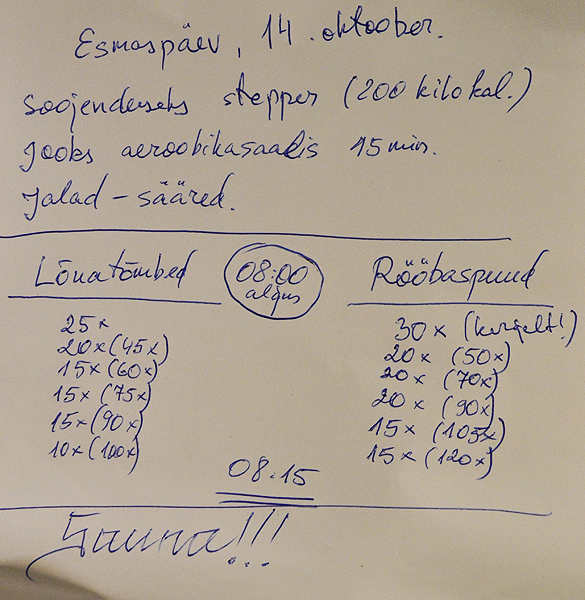 Esmaspäev, 14. oktoober.
Soojenduseks stepper (200 kilokal.)
Jooks aeroobikasaalis 15 min.
Jalad - sääred.
Lõuatõmbed
08:00
algus
Rööbaspuud
25x
20x (45x)
15x (60x)
15x (75x)
15x (90x)
10x (100x)
30x (kergelt!)
20x (50x)
20x (70x)
20x (90x)
15x (105x)
15x (120x)
08.15
Sauna!!!